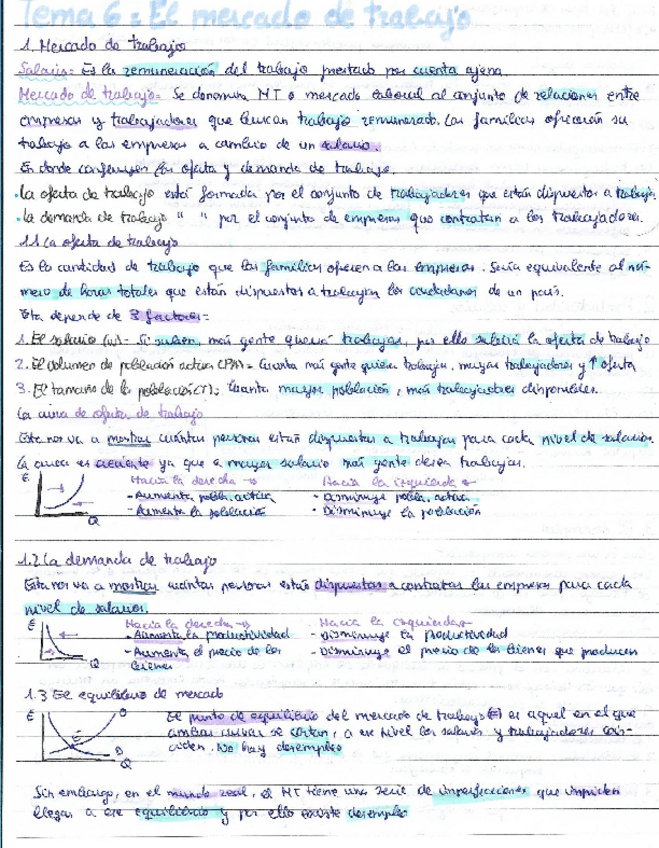 Tema 6: El mercado de trabajo
1. Mercado de trabajo
Salario= Es la remuneración del trabajo prestado por cuenta ajena
Mercado de trabajo= Se denomina MT o mercado laboral al conjunto de relaciones entre
empresas y trabajadores que buscan trabajo remunerado. Las familias ofrecerán su
trabajo a las empresas a cambio de un salario.
En donde confluyen la oferta y demanda de trabajo.
·La oferta de trabajo está formada por el conjunto de trabajadores que están dispuestos a trabajar.
·La demanda de trabajo " " por el conjunto de empresas que contratan a los trabajadores.
1.1 La oferta de trabajo
Es la cantidad de trabajo que las familias ofrecen a las empresas. Sería equivalente al nú-
mero de horas totales que están dispuestos a trabajar los ciudadanos de un país.
Esta depende de 3 factores=
1. El salario (w)= Si suben, más gente querrá trabajar, por ello subirá la oferta de trabajo
2. El volumen de población activa (PA)= Cuanta más gente quiera trabajar, mayor trabajadores y ↑ oferta
3. El tamaño de la población (T)= Cuanta mayor población, más trabajadores disponibles.
La curva de oferta de trabajo
Esta nos va a mostrar cuántas personas están dispuestas a trabajar para cada nivel de salarios.
La curva es creciente ya que a mayor salario más gente desea trabajar.
£ Hacia la derecha → Hacia la izquierda ←
- Aumenta pobla. activa - Disminuye pobla. activa
- Aumenta la población - Disminuye la población
Q
1.2 La demanda de trabajo
Esta nos va a mostrar cuántas personas están dispuestas a contratar las empresas para cada
nivel de salarios.
£ Hacia la derecha → Hacia la izquierda←
- Aumenta la productividad - Disminuye la productividad
- Aumenta el precio de los - Disminuye el precio de los bienes que producen
Q bienes
1.3 El equilibrio de mercado
£ O El punto de equilibrio del mercado de trabajo (E) es aquel en el que
ambas curvas se cortan, a ese nivel los salarios y trabajadores coin-
E D ciden. No hay desempleo
Q
Sin embargo, en el mundo real, el MT tiene una serie de imperfecciones que impiden
llegar a ese equilibrio y por ello existe desempleo